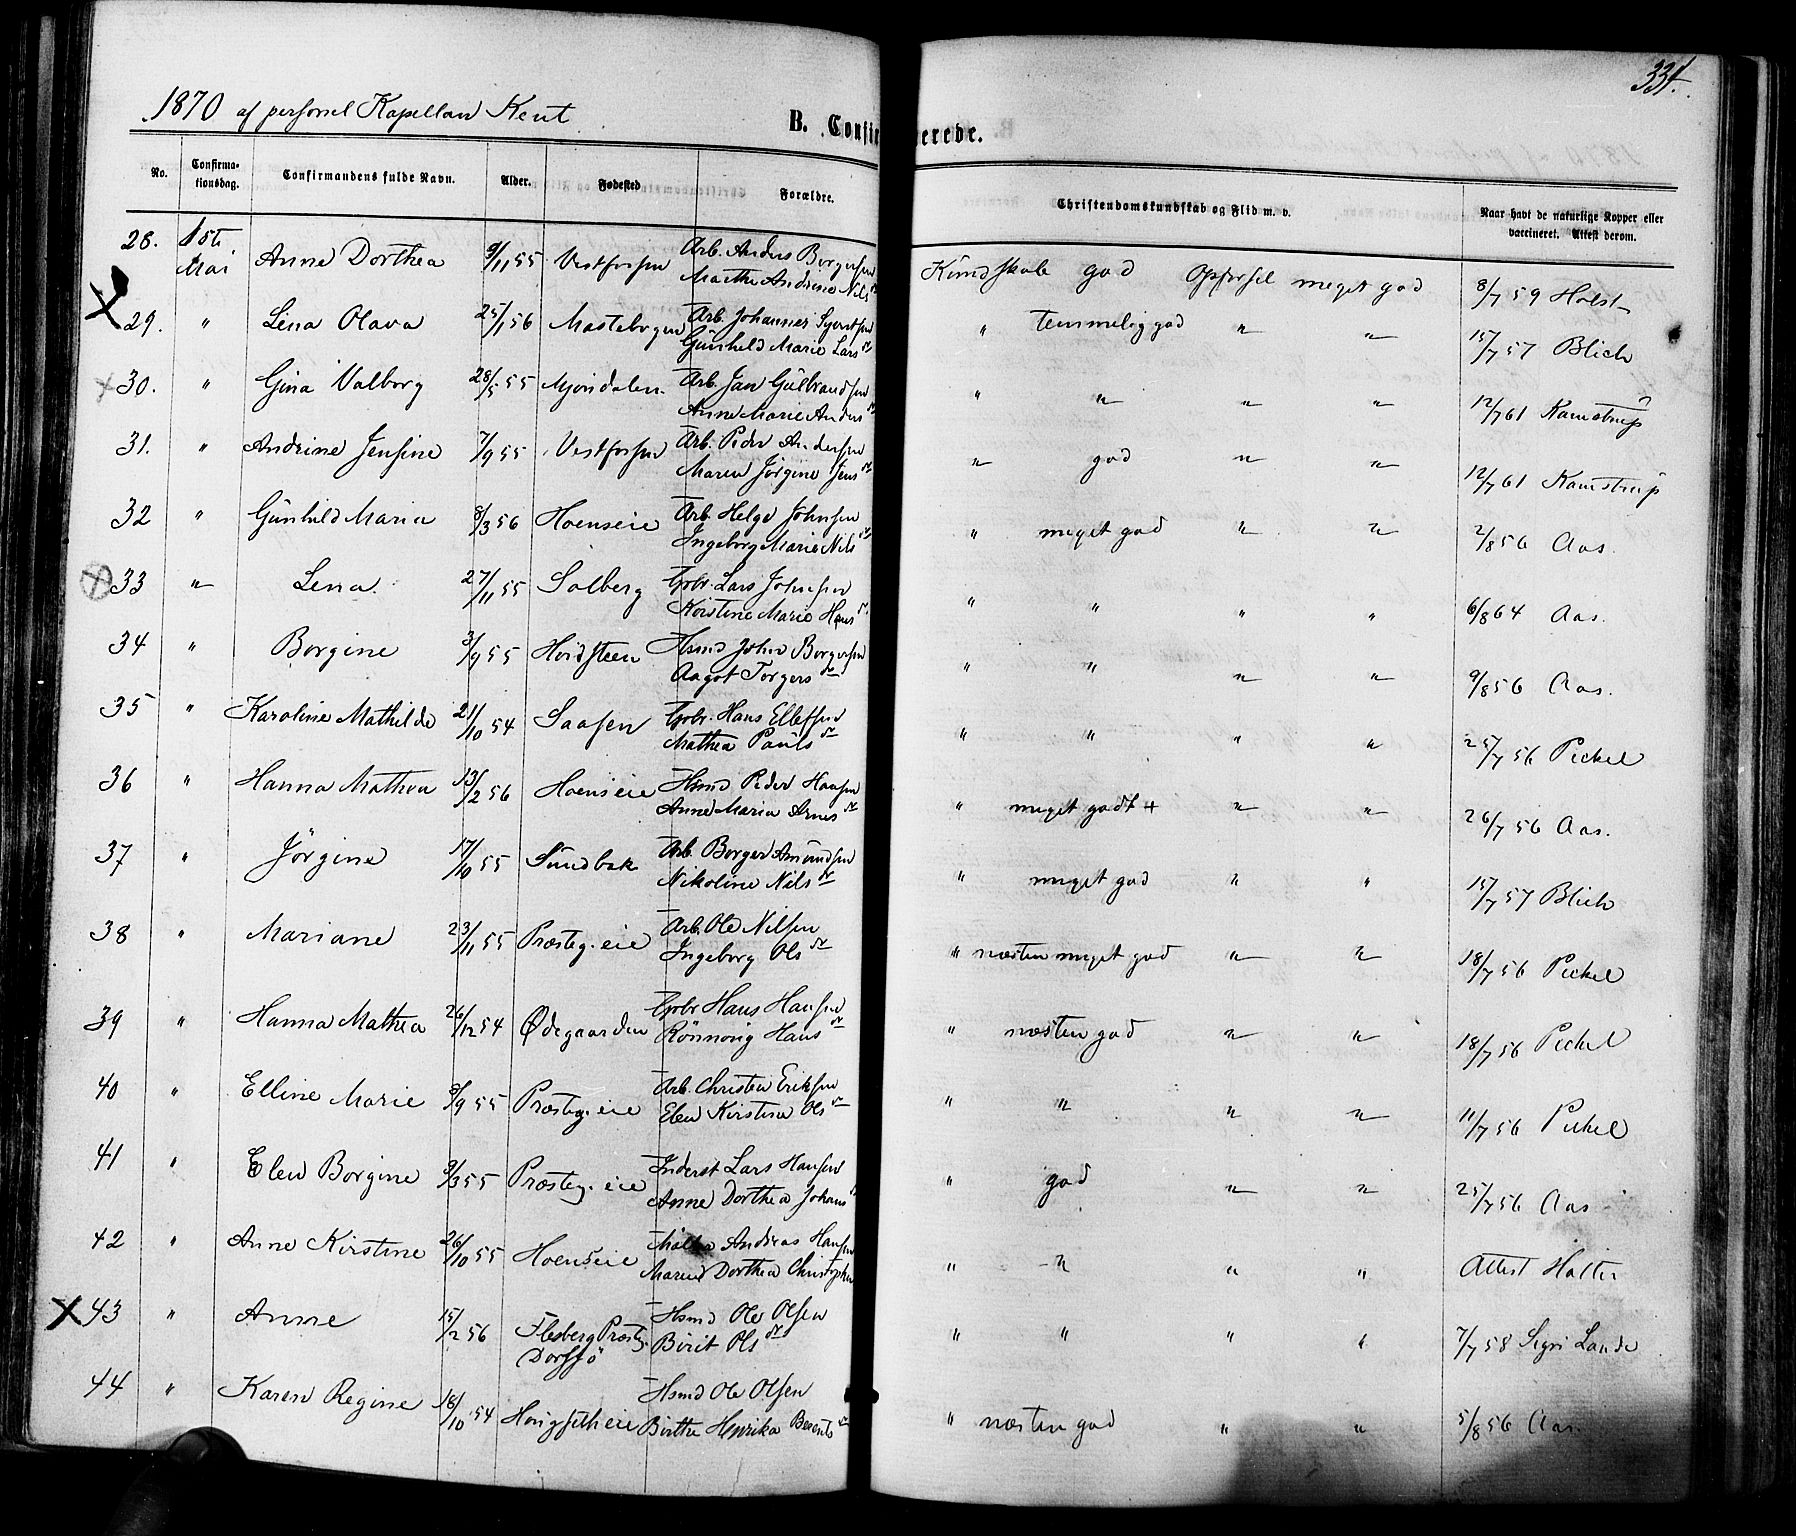 334.
1870 af personel Kapellan Kent
B. Confirmerede.
No. Confirmationsdag. Confirmandens fulde Navn. Alder. Fødested Forældre. Christendomskundskab og Flid m. v. Naar havt de naturlige Kopper eller vaccineret. Attest derom.
28. 1ste Mai Anne Dorthea 9/11 55 Vestfossen Arb. Anders Borgersen Kundskab god Opførsel meget god 8/7 59 Holst
Marthe Andrine Nils dr
29. " Lina Olava 25/1 56 Mastebogen Arb. Johannes Syvertsen " temmelig god " " 15/7 57 Blich
Gunhild Marie Lars dr
30. " Gina Valborg 28/5 55 Mjøndalen Arb. Jan Gulbrandsen " " " " 12/7 61 Kamstrup
Anne Marie Anders dr
31. " Andrine Jensine 7/9 55 Vestfossen Arb. Peder Andersen " god " " 12/7 61 Kamstrup
Maren Jørgine Jens dr
32 " Gunhild Maria 8/3 56 Hoenseie Arb. Helge Johnsen " meget god " " 2/8 56 Aas.
Ingeborg Marie Nils dr
33 " Lena 27/11 55 Solberg Gbr. Lars Johnsen " " " " 6/8 64 Aas.
Kirstine Marie Hans dr
34 " Borgine 3/9 55 Hoidsteen Hsmd John Borgersen " " " " 9/8 56 Aas.
Aagot Torgers dr
35 " Karoline Mathilde 21/10 54 Saasen Gbr. Hans Ellefsen " " " " 25/7 56 Pickel
Mathea Pauls dr
36 " Hanna Mathea 13/2 56 Hoenseie Hsmd Peder Hansen " meget godt + " " 26/7 56 Aas.
Anne Maria Arnes dr
37 " Jørgine 17/10 55 Sundbak Arb. Borger Amundsen " meget god " " 15/7 57 Blich
Nikoline Nils dr
38 " Mariane 23/11 55 Præsteg. eie Arb. Ole Nilsen " næsten meget god " " 18/7 56 Pickel
Ingeborg Ols dr
39 " Hanna Mathea 26/12 54 Ødegaarden Gbr Hans Hansen " næsten god " " 18/7 56 Pickel
Rønnoug Hans dr
40 " Elline Marie 8/9 55 Præsteg. eie Arb. Christen Eriksen " " " " 11/7 56 Pickel
Elen Kirstina Ols dr
41 " Elen Borgine 9/3 55 Præsteg. eie Inderst Lars Hansen " god " " 25/7 56 Aas
Anne Dorthea Johans dr
42 " Anne Kirstine 26/10 55 Hoenseie Andreas Hansen " " " " Attest Holter
Maren Dorthea Christophers
43 " Anne 15/2 56 Flesberg Præsteg. Hsmd Ole Olsen " " " " 7/7 58 Sigri Lande
Dorfsø Birit Ols dr
44 " Karen Regine 18/10 54 Haugsetheie Hsmd Ole Olsen " næsten god " " 5/8 56 Aas.
Birthe Henrika Berents dr